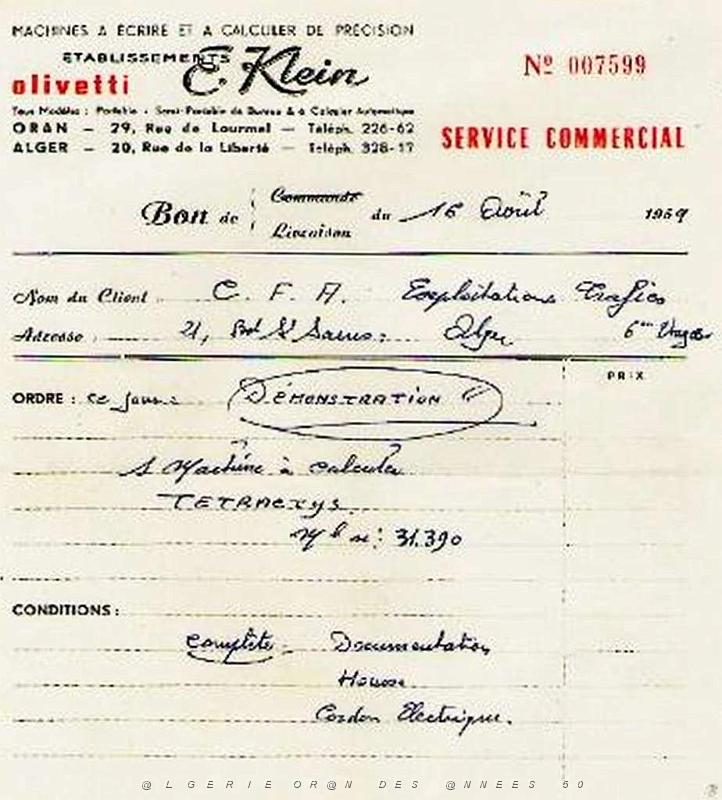 MACHINES A ÉCRIRE ET A CALCULER DE PRÉCISION
ETABLISSEMENTS
olivetti E. Klein
Nº 007599
Tous Modèles : Portable - Semi-Portable de Bureau & à Calculer Automatique
ORAN — 29, Rue de Lourmel — Téléph. 226-62
ALGER — 20, Rue de la Liberté — Téléph. 328-17
SERVICE COMMERCIAL
Bon de { Commande
Livraison
du 16 Août 1959
Nom du Client C. F. A. Exploitations Trafics
Adresse 21, Bd St Saens: Alger 6ème
PRIX
ORDRE : ce jour: DÉMONSTRATION "
1 Machine à calculer
TETRACTYS
Ml n: 31.390
CONDITIONS :
Complète: Documentation
Housse
Cordon Électrique.
@ L G E R I E O R @ N D E S @ N N E E S 5 0